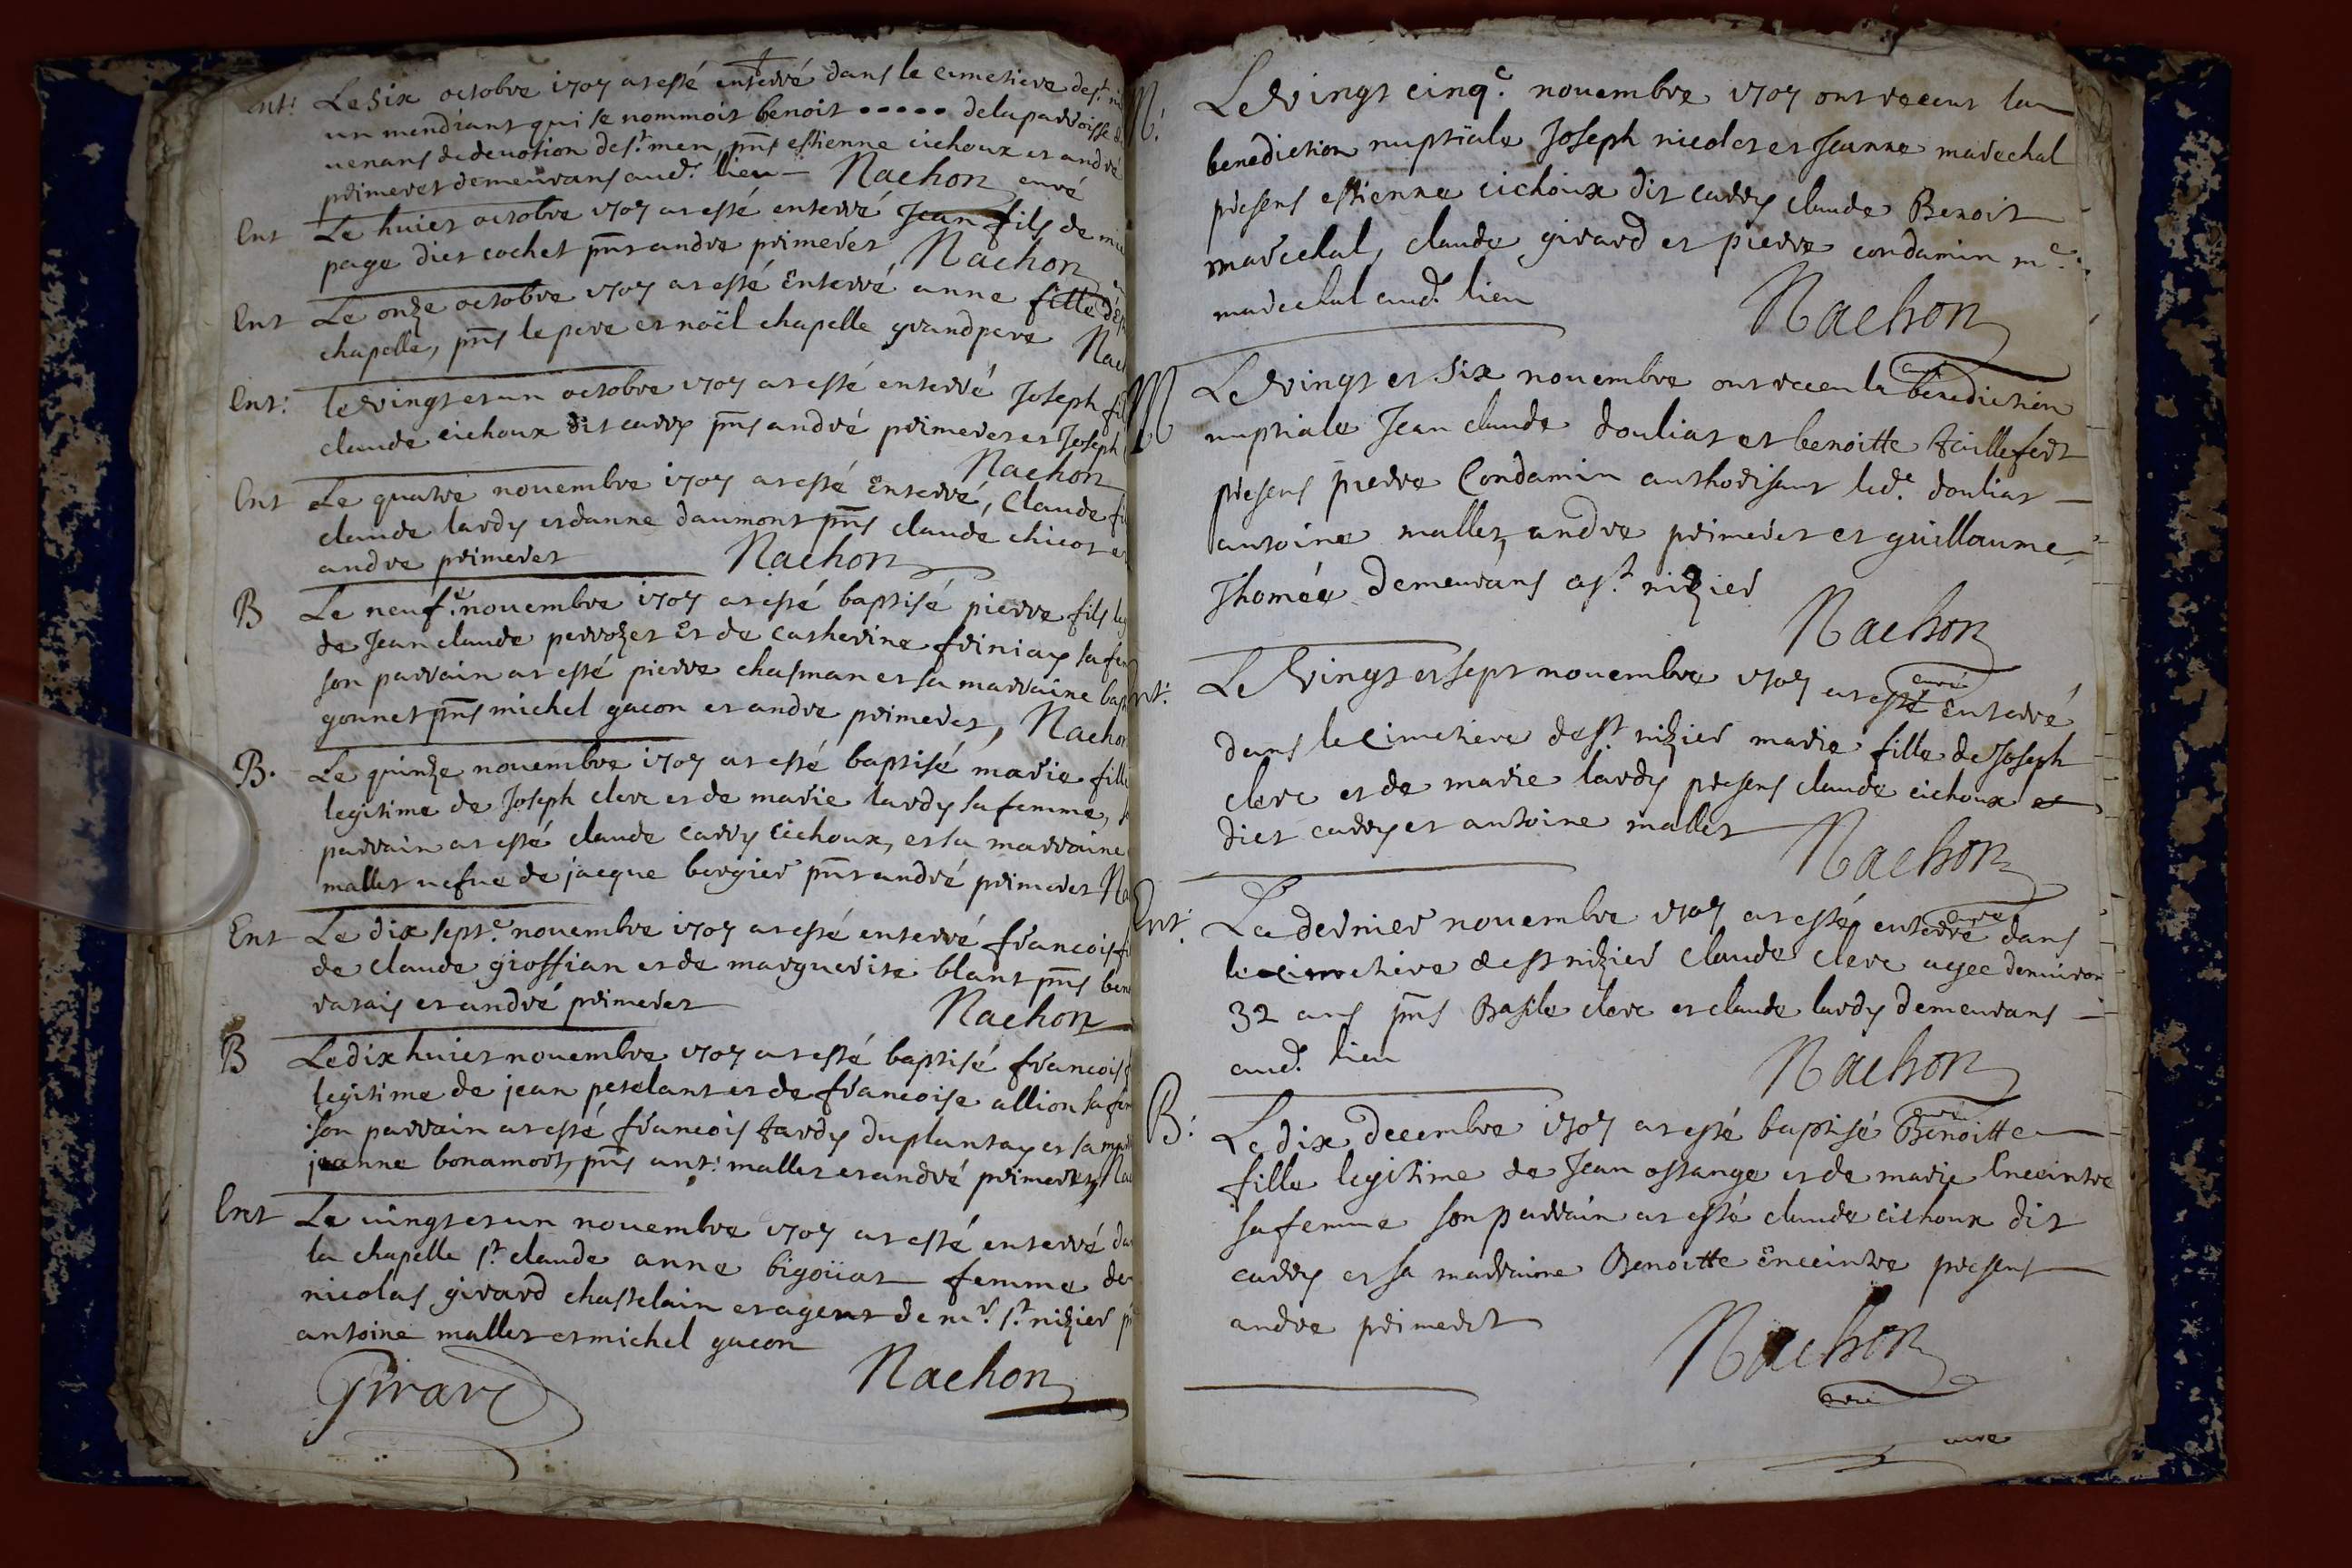 Ent: Le Six octobre 1707 at esté enterré dans le cimetiere de st.
un mendiant qui se nommoit benoit ..... de la parroisse
venant de devotion de st. men, pnts estienne cichoux et andré
primeret demeurans aud. lieu — Nachon curé
Ent Le huict octobre 1707 at esté enterré Jean fils de
page dict cochet pnt andre primeret Nachon
Ent Le onze octobre 1707 at esté Enterré anne fille
chapelle, pnts le pere et noël chapelle grandpere
Ent: Le vingt et un octobre 1707 at esté enterré Joseph
claude cichoux dit carry pnts andré primeret et Joseph
Nachon
Ent Le quatre novembre 1707 at esté Enterré, Claude
claude lardy et danne daumont pnts claude chicot
andre primeret Nachon
B Le neuf.e novembre 1707 at esté baptisé pierre fils
de Jean claude perrozet Et de catherine friniay
son parrain at esté pierre chasman et sa marraine
gonnet pnts michel gacon et andre primeret, Nachon
B. Le quinze novembre 1707 at esté baptisé marie fille
legitime de Joseph clerc et de marie lardy sa femme,
parrain at esté claude carry cichoux, et sa marraine
mallet vefue de jacque bergier pnt andré primeret
Ent Le dix sept.e novembre 1707 at esté enterré francois
de claude gioffian et de marguerite blant pnts
varais et andré primeret Nachon
B Le dix huict novembre 1707 at esté baptisé francois
legitime de jean petelant et de francoise allion
son parrain at esté francois tardy duplantay et sa
jeanne bonamort, pnts ant: mallet et andré primeret,
Ent Le vingt et un novembre 1707 at esté enterré
la chapelle st. claude anne bigoüat femme de
nicolas girard chastelain et agent de mr. st. nizier
antoine mallet et michel gacon
Girard Nachon
M. Le vingt cinq.e novembre 1707 ont receut la
benediction nuptiale Joseph nicolet et Jeanne marechal
presens estienne cichoux dit carry claude Benoit
marechal, claude girard et pierre condamin me.
marechal aud. lieu Nachon
curé
M Le vingt et Six novembre ont receu la benediction
nuptiale Jean claude douliat et benoitte taillefert
presens pierre Condamin authorisant led.e douliat —
antoine mallet, andre primeret et guillaume
Thomée demeurans a st. nizier
Nachon
curé
Ent: Le Vingt et sept novembre 1707 at esté Enterré
dans le cimetiere de st. nizier marie fille de Joseph
clerc et de marie lardy presens claude cichoux et
dict carry et antoine mallet Nachon
curé
Ent: Le dernier novembre 1707 at esté enterré dans
le cimetiere de st nizier claude clerc agee denuiron
32 ans pnts Basile clerc et claude lardy demeurans —
aud. lieu Nachon
curé
B: Le dix decembre 1707 at esté baptisé Benoitte
fille legitime de Jean ossange et de marie Enceintre
sa femme son parrain at esté claude cichoux dit
carry et sa marraine Benoitte Enceintre present
andre primeret Nachon
curé
curé